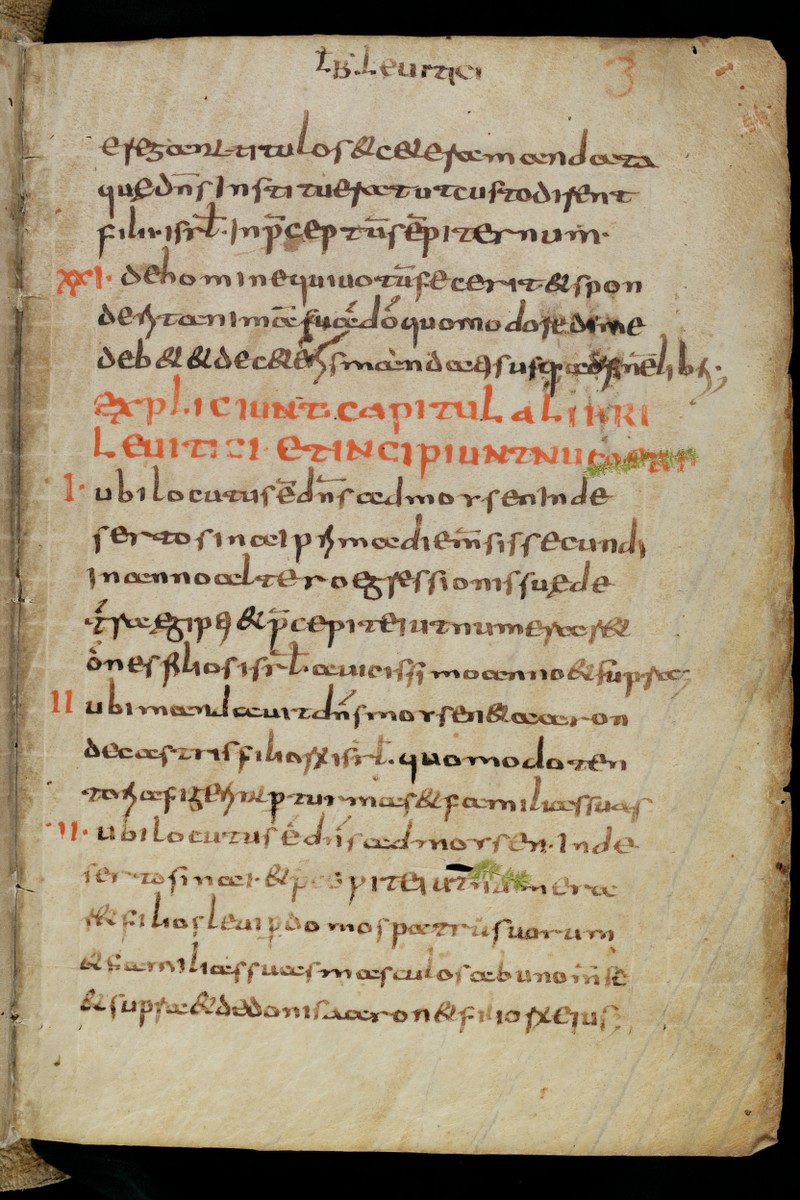 LB. Leuitici 3
56
eregant titulos & cetera mandata
quę dn̄s instituerat ut custodirent
filii isrl̄ in p̄ceptū sēpiternum
XXI. de homine qui uotū fecerit & spon
derit animā suā dō quomodo redime
deb& & de
EXPLICIUNT CAPITULA LIBRI
LEUITICI ET INCIPIUNT NU
I. ubi locutus ē dn̄s ad moysen in de
serto sinai prima die m̄sis secundi
in anno altero egressionis suę de
aegipti & p̄cepit ei ut numerar&
om̄es filios isrl̄ a uicissimo anno & supra
II ubi mandauit dn̄s moysen & aaron
de castris filiorū isrl̄. quomodo ten
toria figerent p turmas & familias suas
III. ubi locutus ē dn̄s ad moysen in de
serto sinai & p̄cepit ei ut numera
r& filios leui p domos patrū suorum
& familias suas masculos ab uno m̄se
& supra & de donis aaron & filiorū eius